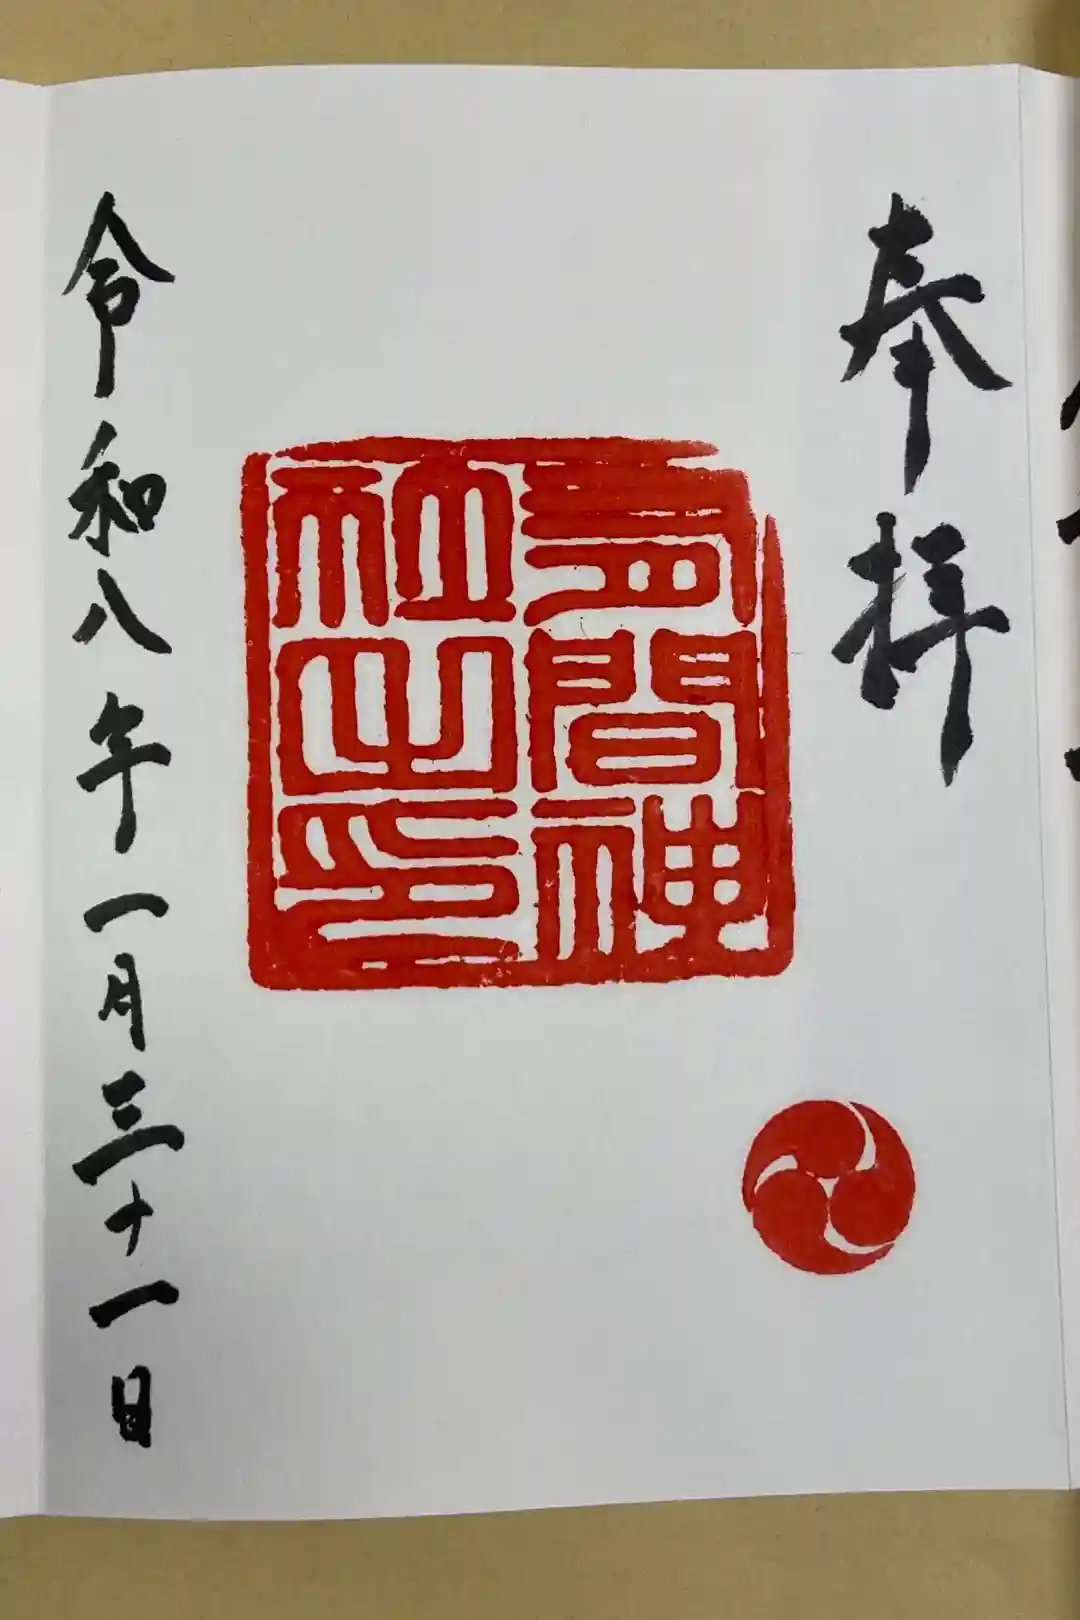 奉拝
有間神
社之印
令和八年一月三十一日